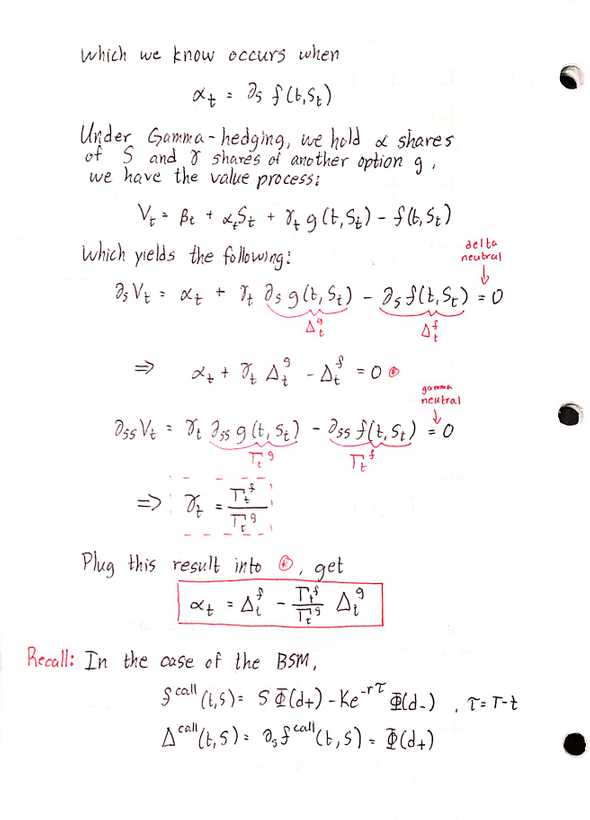 which we know occurs when
αₜ = ∂ₛ f(t,Sₜ)
Under Gamma-hedging, we hold α shares
of S and γ shares of another option g,
we have the value process:
Vₜ = βₜ + αₜSₜ + γₜ g(t,Sₜ) - f(t,Sₜ)
Which yields the following:
delta
neutral
↓
∂ₛVₜ = αₜ + γₜ ∂ₛg(t,Sₜ) - ∂ₛf(t,Sₜ) = 0
Δₜᵍ Δₜᶠ
⇒ αₜ + γₜ Δₜᵍ - Δₜᶠ = 0 ⊛
gamma
neutral
↓
∂ₛₛVₜ = γₜ ∂ₛₛg(t,Sₜ) - ∂ₛₛf(t,Sₜ) = 0
Γₜᵍ Γₜᶠ
⇒ γₜ = Γₜᶠ / Γₜᵍ
Plug this result into ⊛, get
αₜ = Δₜᶠ - Γₜᶠ / Γₜᵍ Δₜᵍ
Recall: In the case of the BSM,
f^call(t,S) = S Φ(d₊) - Ke^-rτ Φ(d₋) , τ = T-t
Δ^call(t,S) = ∂ₛf^call(t,S) = Φ(d₊)